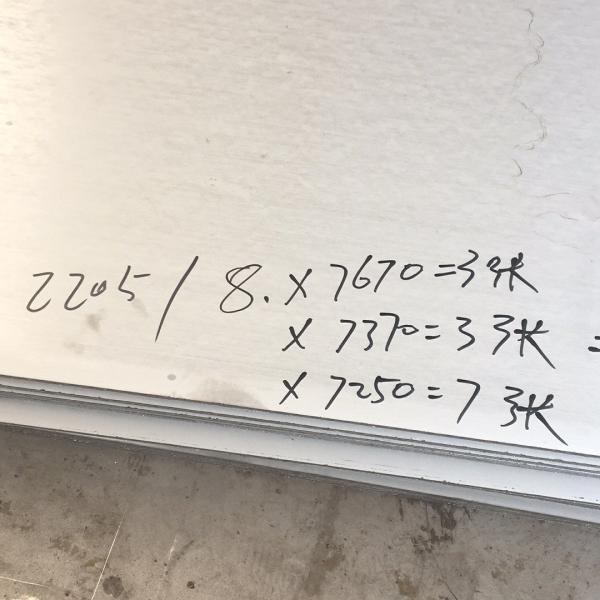 2205/8.×7670=3张
×7370=3张
×7250=7张
=